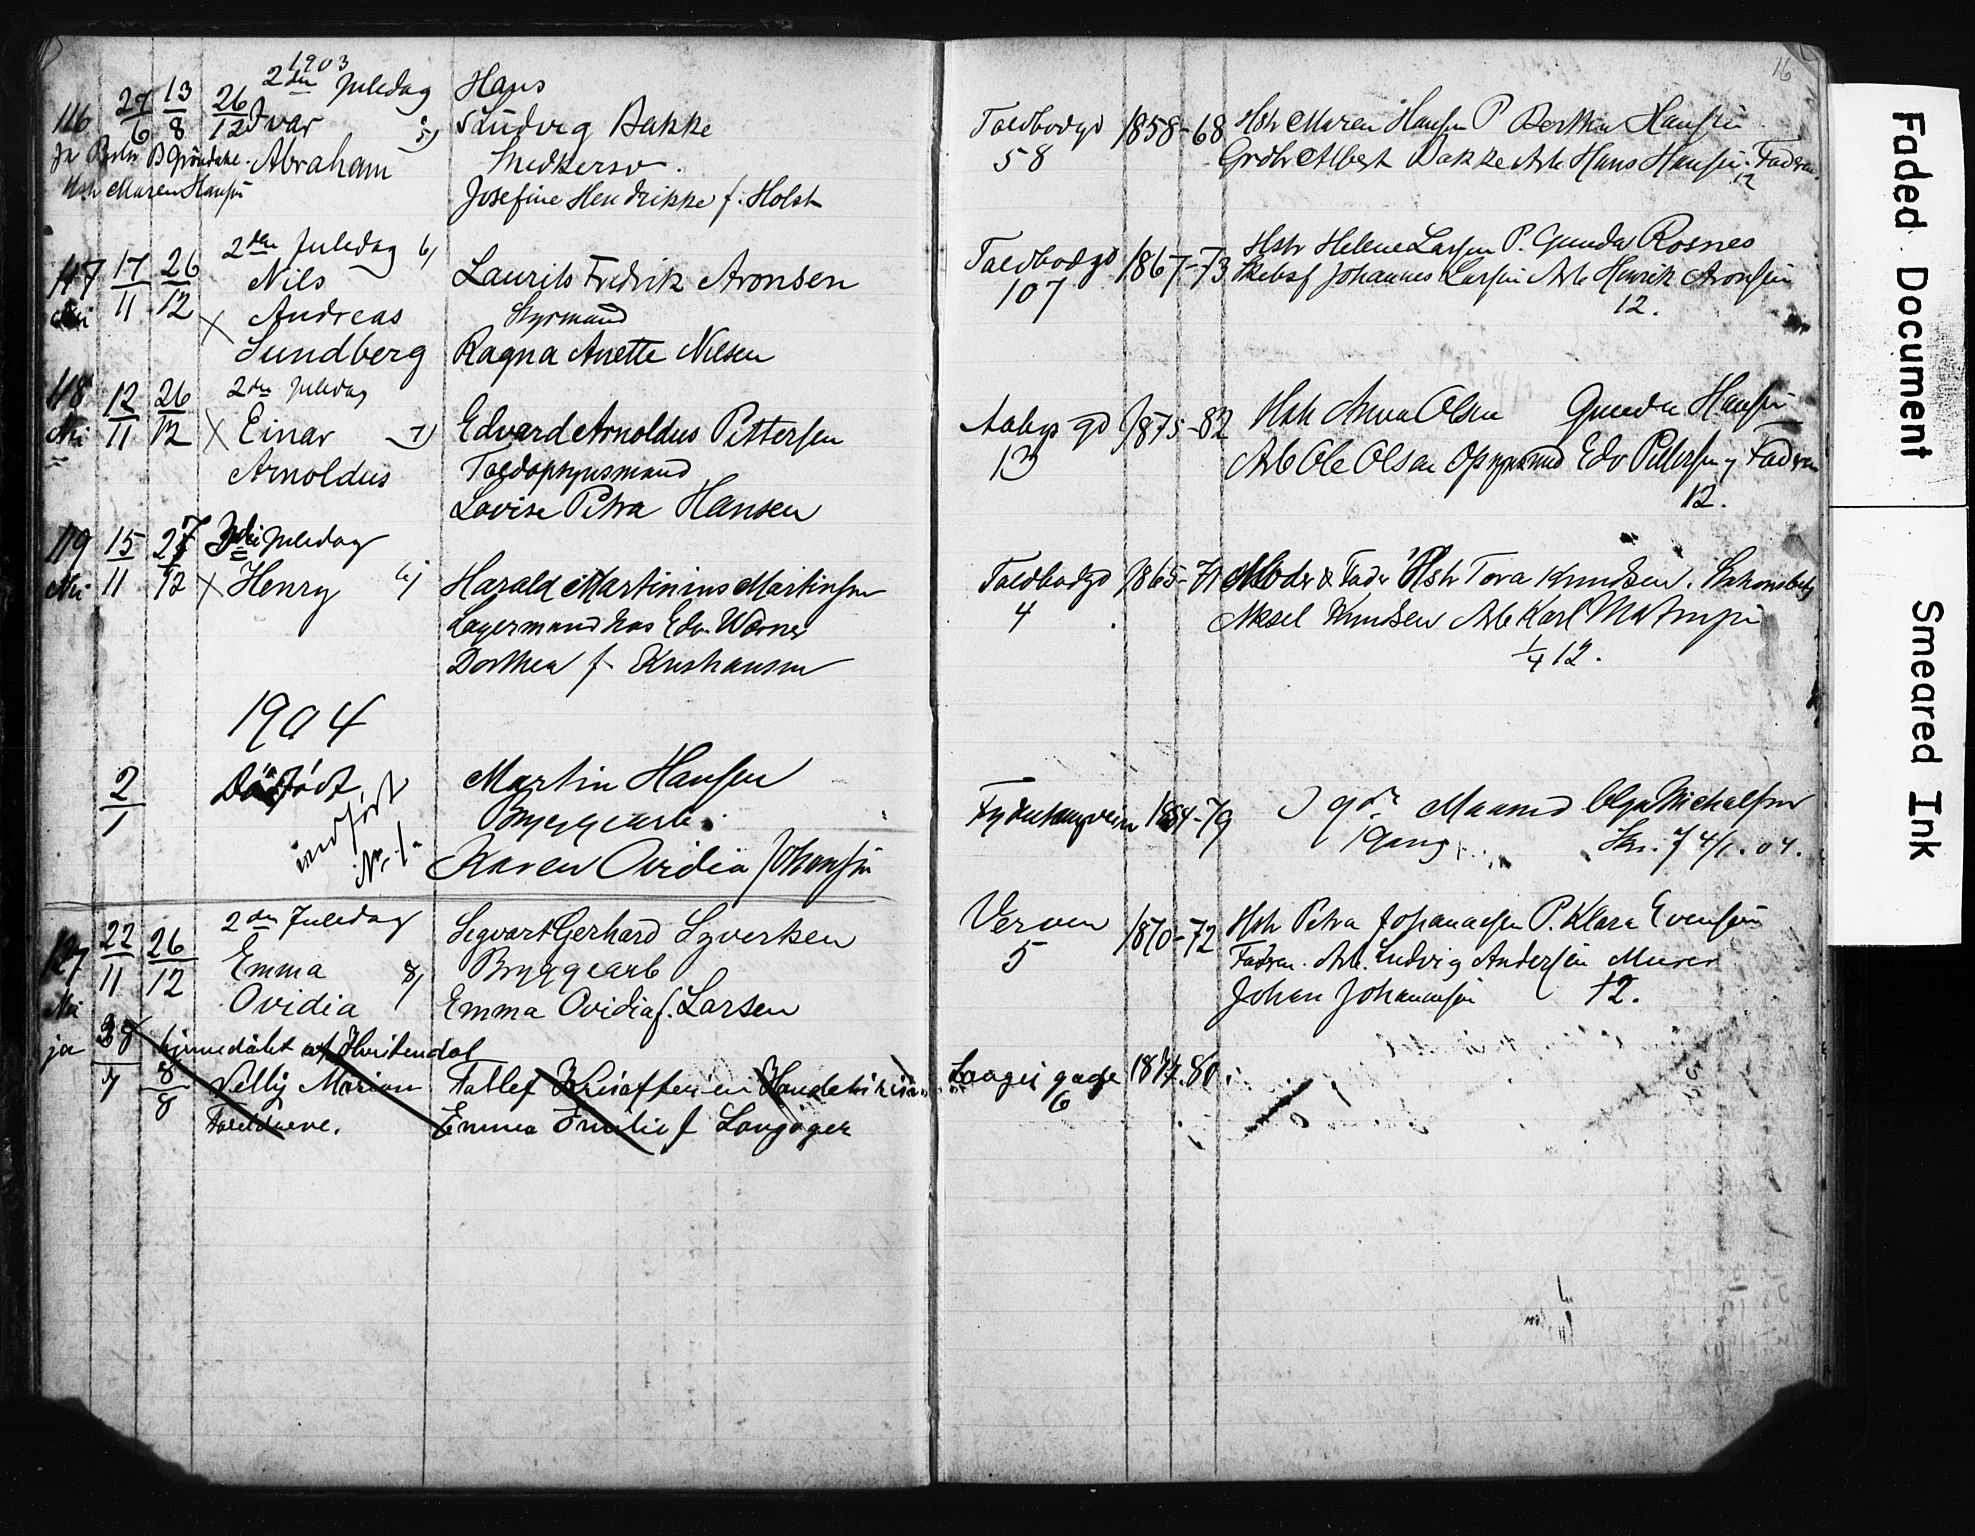 16
1903
2den Juledag
116 27/6 13/8 26/12 Ivar 5)
Abraham
Ja
Hstr Maren Hansen
Hans
Ludvig Bakke
Snedkersv.
Josefine Hendrikke f. Holst
Toldbodgd 58
1858-68
Hstr Maren Hansen P Berthea Hansen
Grdbr Albert Bakke Arb Hans Hansen. Fadren.
12
2den Juledag 6)
117 17/11 26/12 Nils
Nei × Andreas
Lundberg
Laurits Fredrik Aronsen
Styrmand
Ragna Anette Nilsen
Toldbodgd 107
1867-73
Hstr Helene Larsen P. Gunda Rosnes
Skibsf Johannes Larsen Arb Henrik Aronsen
12.
118 12/11 26/12 2den Juledag
Nei × Einar 7)
Arnoldus
Edvard Arnoldus Pettersen
Toldopsynsmand
Lovise Petra Hansen
Aabys gd 13
1875-82
Hstr Anna Olsen Gunda Hansen
Arb Ole Olsen Opsynsmd Edv Pettersen, Fadren
12.
119 15/11 27/12 3die Juledag
Nei × Henry
Harald Martinius Martinsen
Lagermand hos Edv. Warner
Dorthea f. Kristiansen
Toldbodgd 4
1865-71
Moder & Fader Hstr Tora Knudsen.
Aksel Knudsen Arb Karl
1/4 12.
1904
2/1 Dødfødt
indført
No. 1.
Martin Hansen
Bryggearb.
Karen Ovidia Johansen
1884-79
I 9de Maaned Olga Michalsen
1 Gang 4/1. 04.
127 22/11 26/12 2den Juledag
Emma 8)
Nei Ovidia
Sigvart Gerhard Syvertsen
Bryggearb
Emma Ovidia f. Larsen
Verven 5
1870-72
Hstr Petra Johannesen P. Klara Evensen
Fadren. Arb. Ludvig Andersen Murer
Johan Johannesen 12.
ja 28/7 8/8 hjemmedøbt af Hvitendal
Nelly Marian
Tollef
Emma Emilie f Langåger
Langes gade 6
1874.80.
Faded Document
Smeared Ink